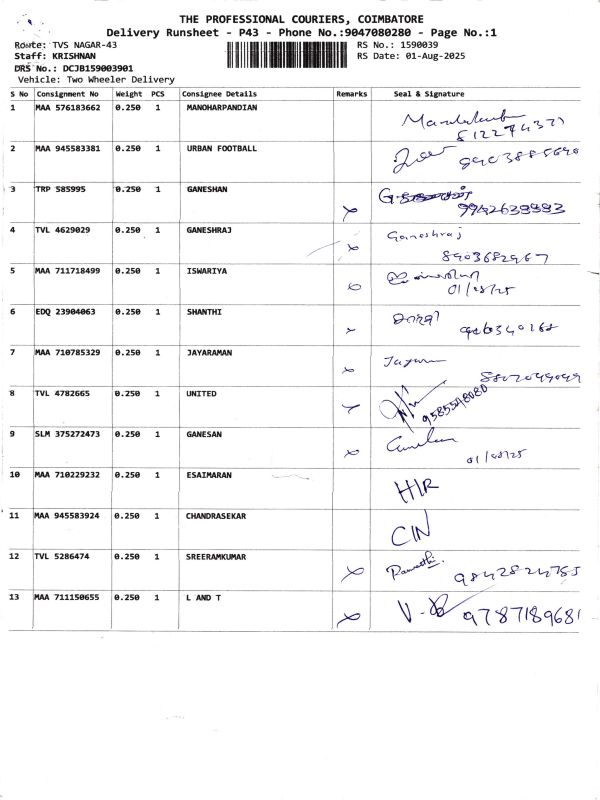 THE PROFESSIONAL COURIERS, COIMBATORE
Delivery Runsheet - P43 - Phone No.:9047080280 - Page No.:1
Route: TVS NAGAR-43 RS No.: 1590039
Staff: KRISHNAN RS Date: 01-Aug-2025
DRS No.: DCJB159003901
Vehicle: Two Wheeler Delivery
S No Consignment No Weight PCS Consignee Details Remarks Seal & Signature
1 MAA 576183662 0.250 1 MANOHARPANDIAN
2 MAA 945583381 0.250 1 URBAN FOOTBALL
3 TRP 585995 0.250 1 GANESHAN
4 TVL 4629029 0.250 1 GANESHRAJ Ganeshraj
8903682967
5 MAA 711718499 0.250 1 ISWARIYA
01/08/25
6 EDQ 23904063 0.250 1 SHANTHI
7 MAA 710785329 0.250 1 JAYARAMAN
8 TVL 4782665 0.250 1 UNITED 9585548080
9 SLM 375272473 0.250 1 GANESAN
01/08/25
10 MAA 710229232 0.250 1 ESAIMARAN H/R
11 MAA 945583924 0.250 1 CHANDRASEKAR C/N
12 TVL 5286474 0.250 1 SREERAMKUMAR 9842824785
13 MAA 711150655 0.250 1 L AND T 9787189681